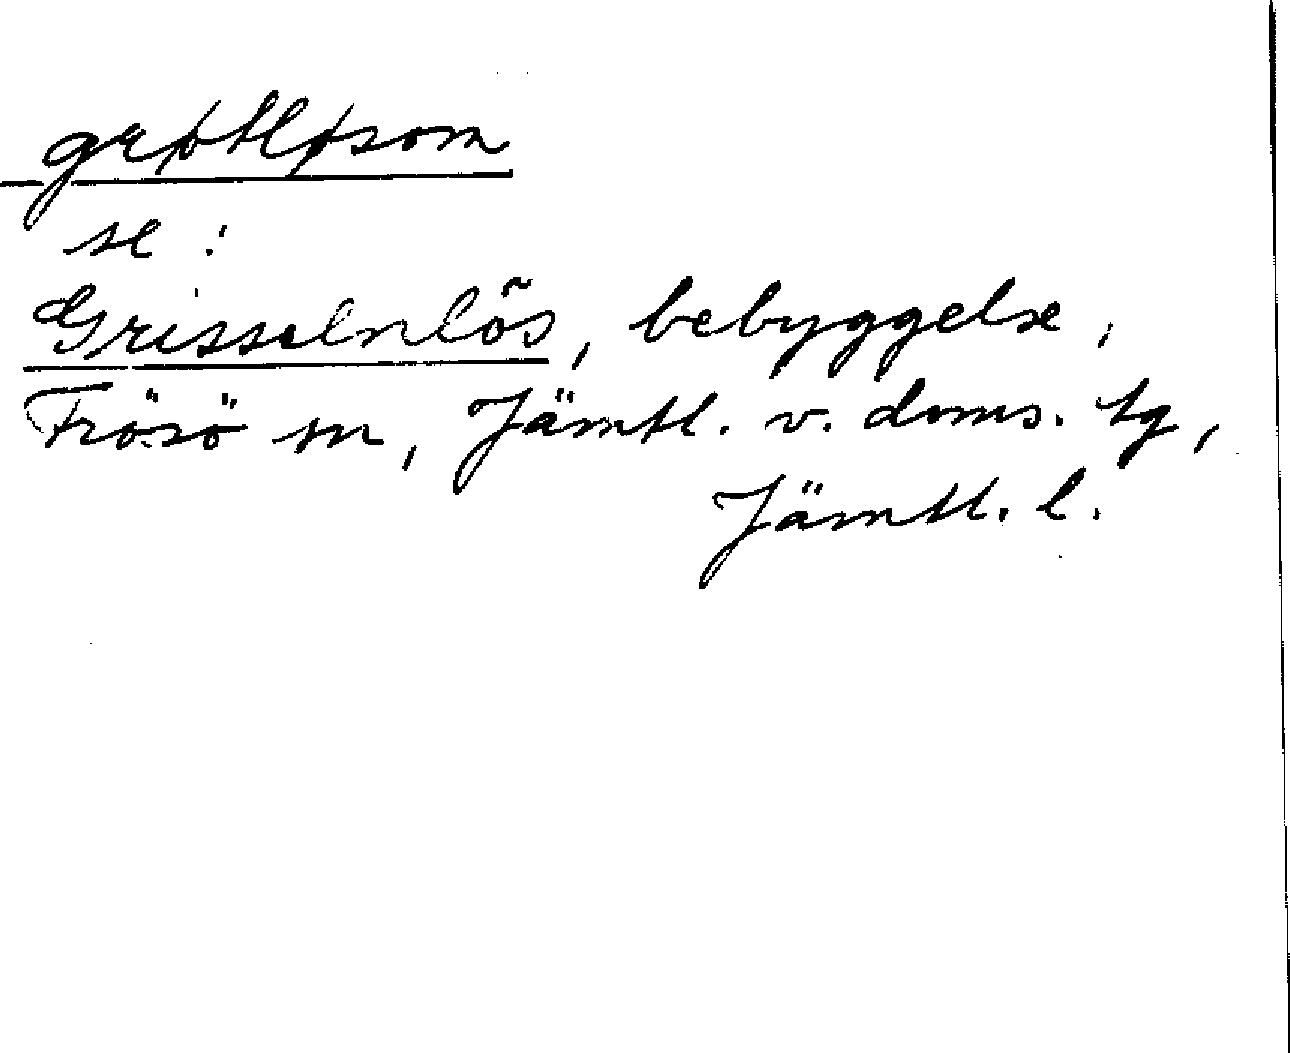 grøtløsom
se :
Grisselnlös, bebyggelse,
Frösö sn, Jämtl. v. doms. tg,
Jämtl. l.